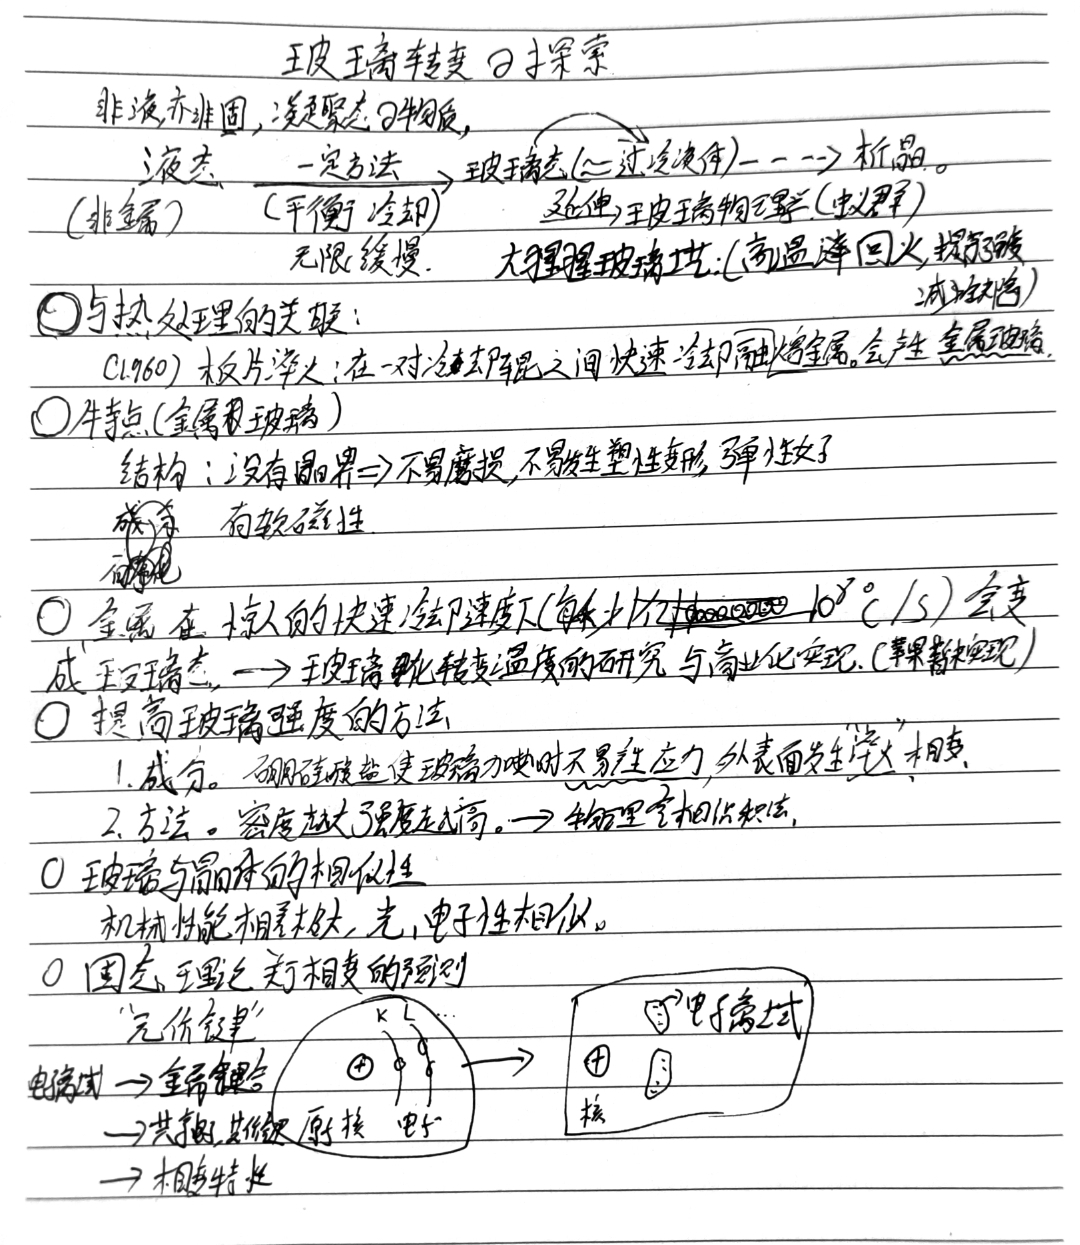 玻璃转变的探索
非液亦非固，凝聚态的物质，
液态 一定方法 玻璃态(≈过冷液体)----→析晶。
(非金属) (平衡冷却) 延伸→玻璃物理学(蚁群)
无限缓慢. 大猩猩玻璃工艺:(高温淬回火,提高强度
减少缺陷)
○与热处理的关联:
(1960) 板片淬火:在一对冷却辊之间快速冷却融熔金属。会产生金属玻璃.
○特点(金属玻璃)
结构:没有晶界⇒不易磨损,不易发生塑性变形,弹性好
成分 有软磁性
○ 金属在惊人的快速冷却速度下( 10⁸℃/s)会变
成玻璃态,→玻璃化转变温度的研究与商业化实现.(苹果暂未实现)
○ 提高玻璃强度的方法
1.成分。硼硅酸盐使玻璃 时不易产生应力,外表面发生"淬火"相变.
2.方法。密度越大强度越高。→物理气相沉积法,
○ 玻璃与晶体的相似性
机械性能相差极大,光,电子性相似。
○ 固态理论关于相变的预测
"元价键"
K L ...
电子离域
电子离域→金属键合
→共享电子,共价键 原子核 电子
核
→相变特性